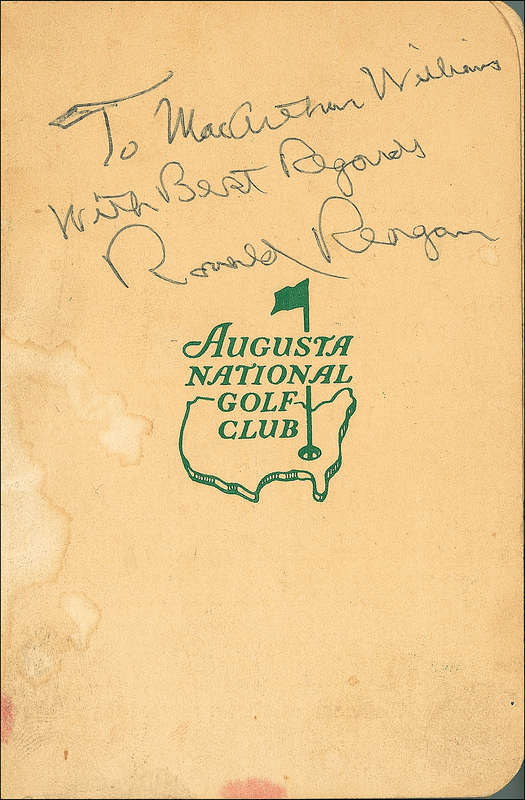 To MacArthur Williams
With Best Regards
Ronald Reagan
AUGUSTA
NATIONAL
GOLF
CLUB